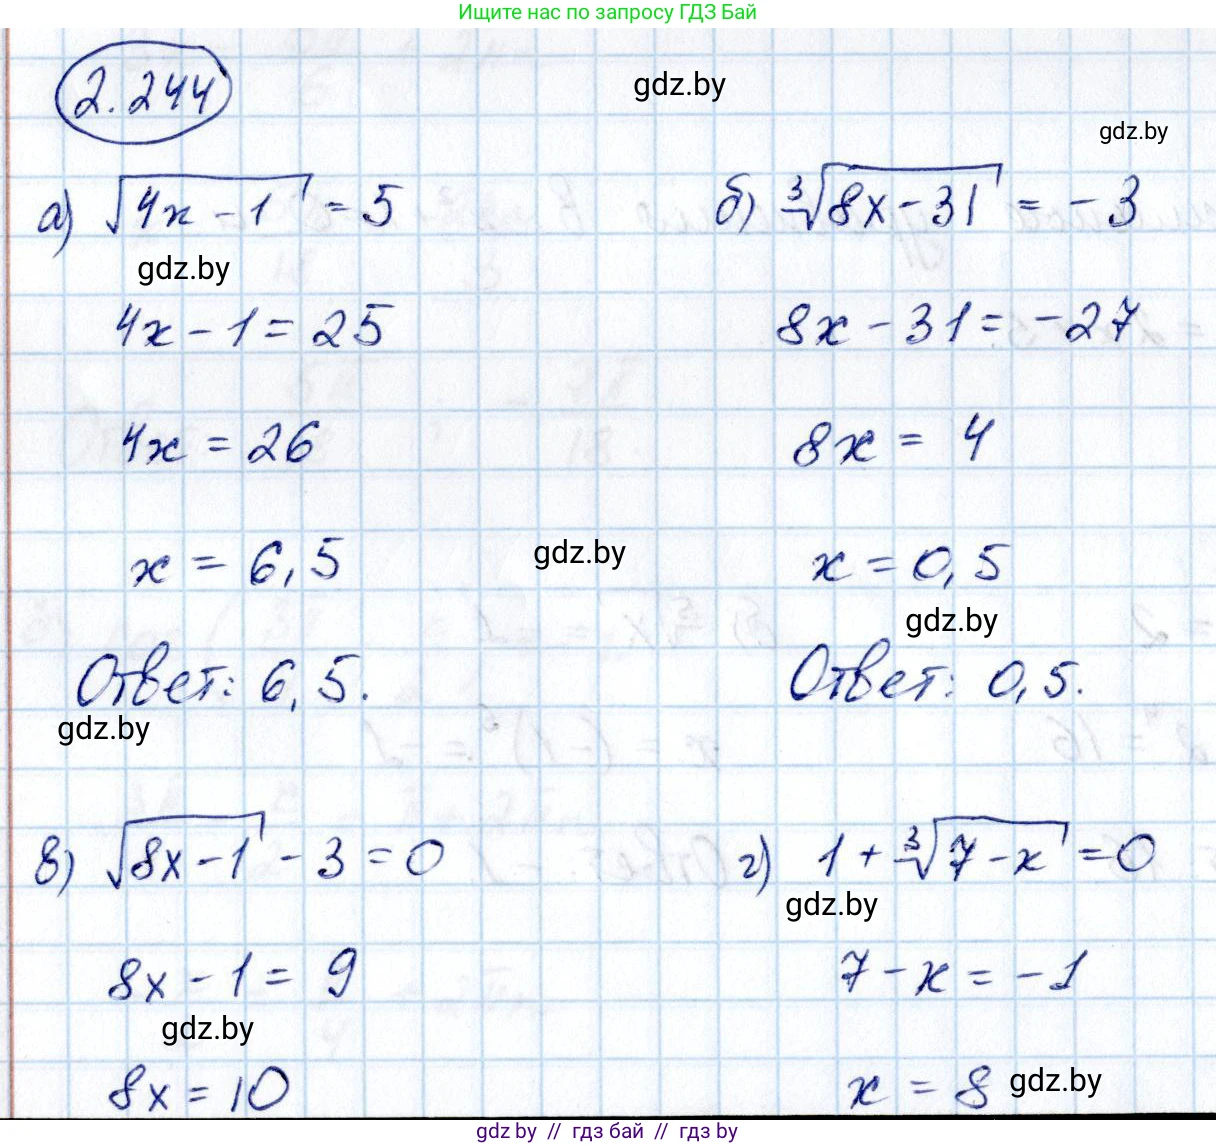 Ищите нас по запросу ГДЗ Бай
2.244
gdz.by
gdz.by
а) √(4x − 1) = 5
б) ∛(8x − 31) = −3
gdz.by
4x − 1 = 25
8x − 31 = −27
4x = 26
8x = 4
x = 6,5
gdz.by
x = 0,5
gdz.by
Ответ: 6,5.
Ответ: 0,5.
gdz.by
в) √(8x − 1) − 3 = 0
г) 1 + ∛(7 − x) = 0
gdz.by
8x − 1 = 9
7 − x = −1
gdz.by
8x = 10
x = 8
gdz.by
gdz.by // гдз бай // гдз by